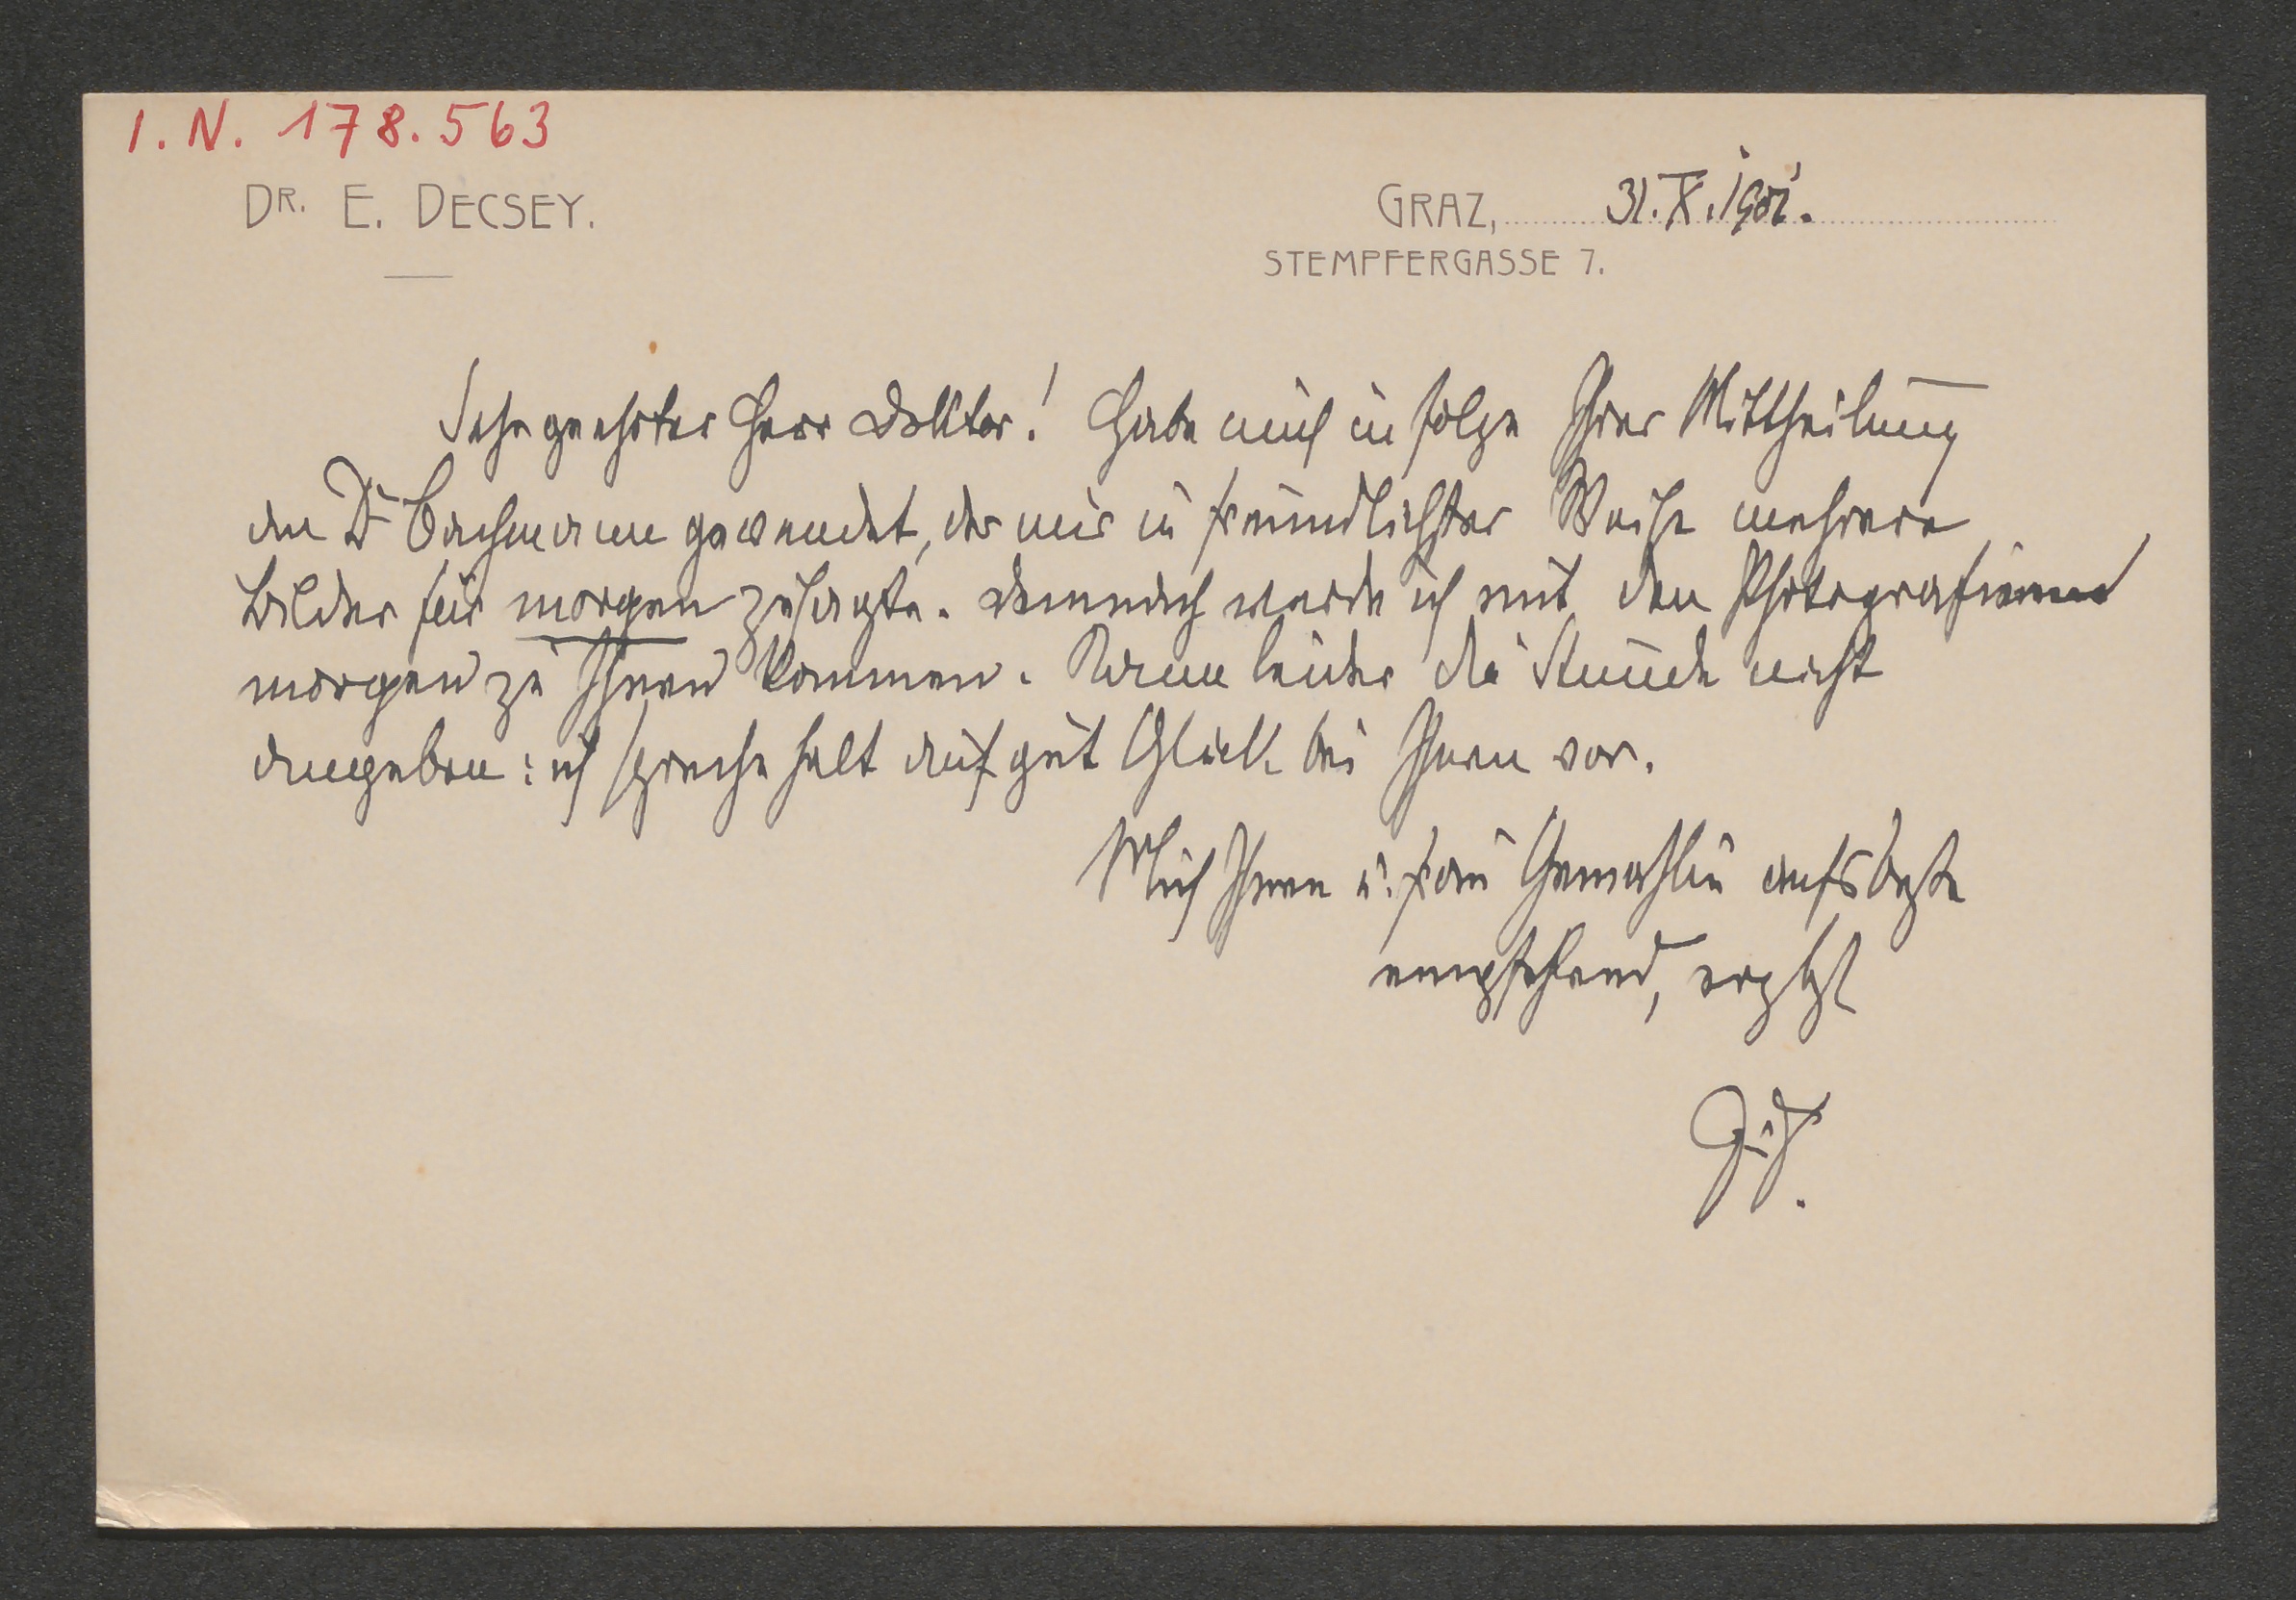 I. N. 178.563
DR. E. DECSEY.
GRAZ, 31. X. 1901.
STEMPFERGASSE 7.
Sehr geehrter Herr Doktor! Habe mich in folge Ihrer Mittheilung
an Dr Bachmann gewendet, der mir in freundlichster Weise mehrere
Bilder für morgen zusagte. Demnach werde ich mit den Photografieen
morgen zu Ihnen kommen. Kann leider die Stunde nicht
angeben: ich spreche halt auf gut Glück bei Ihnen vor.
Mich Ihnen u. Frau Gemahlin aufs beste
empfehlend, ergbst